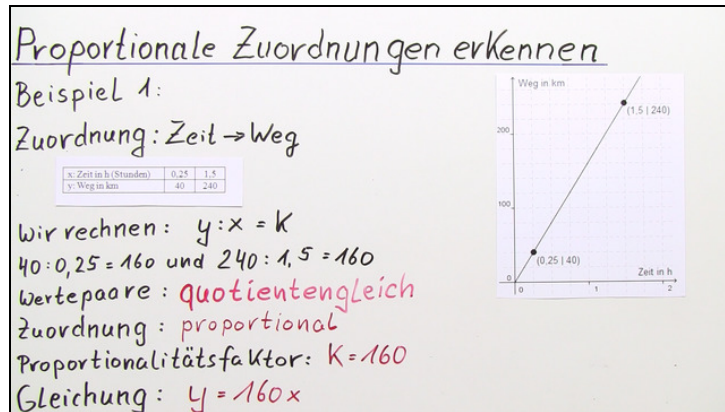 Proportionale Zuordnungen erkennen
Beispiel 1:
Zuordnung: Zeit → Weg
x: Zeit in h (Stunden) 0,25 1,5
y: Weg in km 40 240
Wir rechnen: y:x = K
40:0,25 = 160 und 240:1,5 = 160
Wertepaare: quotientengleich
Zuordnung: proportional
Proportionalitätsfaktor: K=160
Gleichung: y = 160x
Weg in km
(1,5 | 240)
200
100
(0,25 | 40)
Zeit in h
0
0 1 2